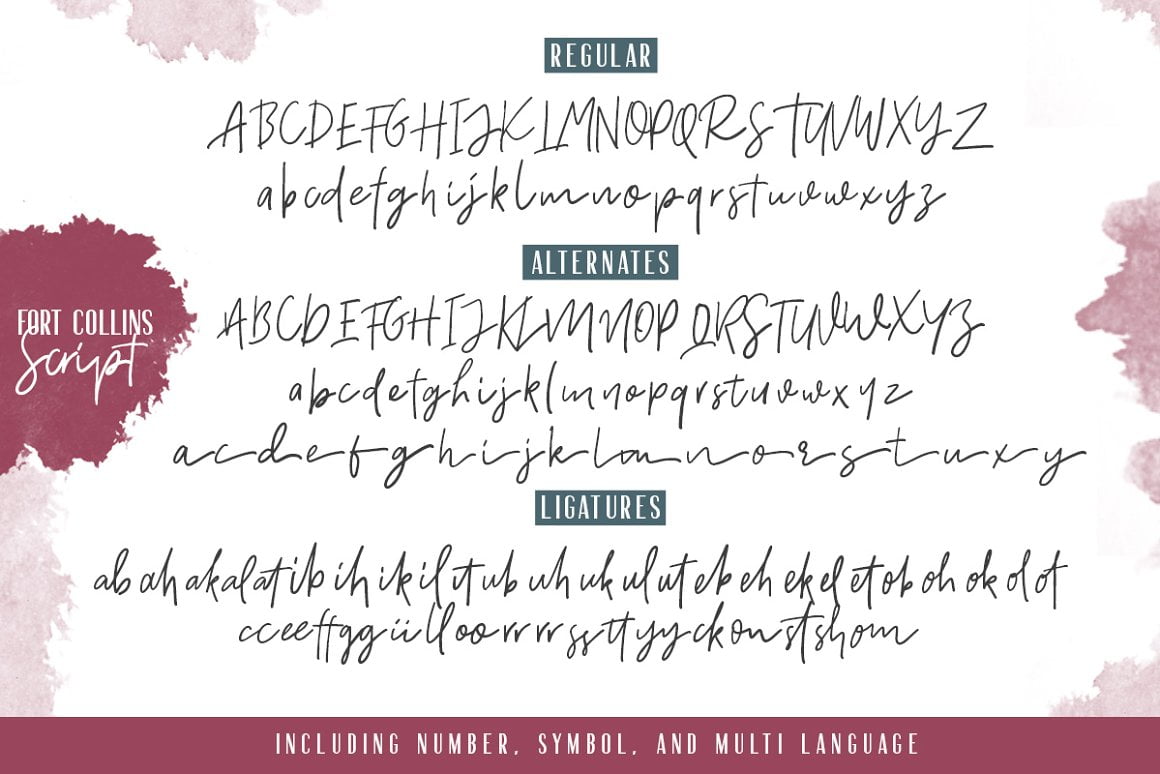 REGULAR
ABCDEFGHIJKLMNOPQRSTUVWXYZ
abcdefghijklmnopqrstuvwxyz
ALTERNATES
FORT COLLINS
Script
ABCDEFGHIJKLMNOPQRSTUVWXYZ
abcdefghijklmnopqrstuvwxyz
acdefghijklmnorstuxy
LIGATURES
ab ah ak al at ib ih ik il it ub uh uk ul ut eb eh ek el et ob oh ok ol ot
cc ee ff gg ii ll oo rr rr ss tt yy ck on st sh om
INCLUDING NUMBER, SYMBOL, AND MULTI LANGUAGE